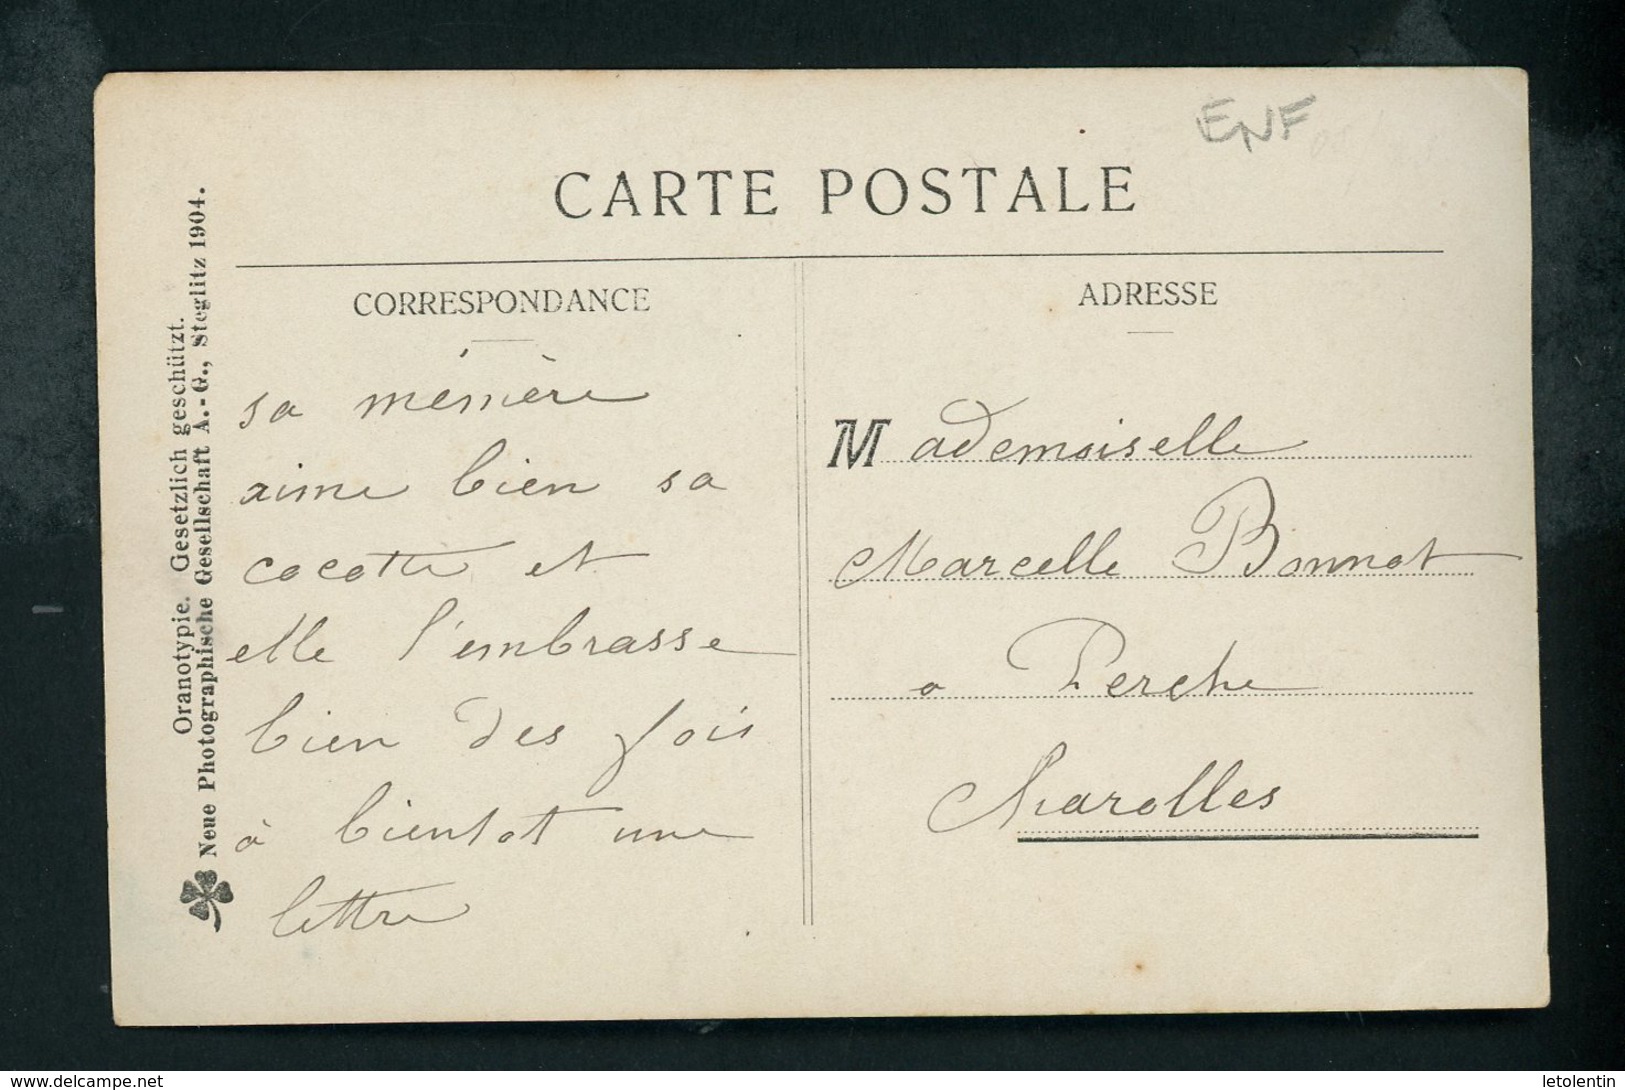 ENF
CARTE POSTALE
CORRESPONDANCE
sa mémère
aime bien sa
cocotte et
elle l'embrasse
bien des fois
à bientot une
lettre
ADRESSE
Mademoiselle
Marcelle Bonnot
a Perche
Charolles
Oranotypie. Gesetzlich geschützt.
Neue Photographische Gesellschaft A.-G., Steglitz 1904.
www.delcampe.net
letolentin